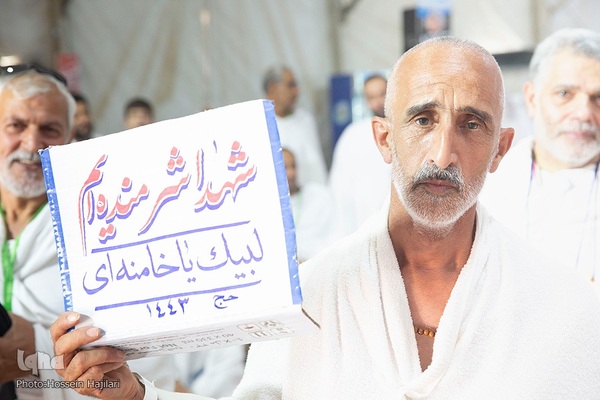 شهدا شرمنده ایم
لبیك یا خامنه ای
حج ۱۴۴۳
iqna
Photo:Hossein Hajilari